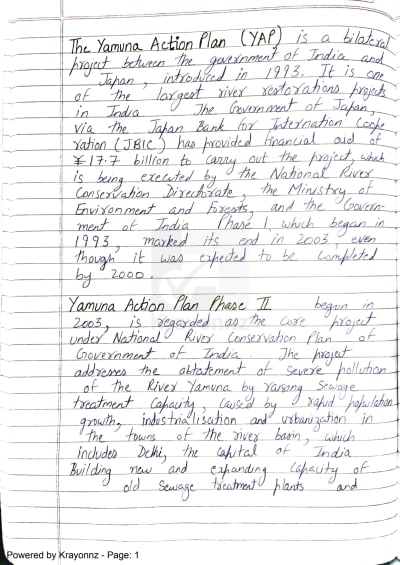 The Yamuna Action Plan (YAP) is a bilateral
project between the government of India and
Japan, introduced in 1993. It is one
of the largest river restorations projects
in India The Government of Japan,
via the Japan Bank for Internation Coope
ration (JBIC) has provided financial aid of
¥17.7 billion to carry out the project, which
is being executed by the National River
Conservation Directorate, the Ministry of
Environment and Forests, and the Govern-
ment of India Phase 1, which began in
1993, marked its end in 2003, even
though it was expected to be completed
by 2000.
Yamuna Action Plan Phase II begun in
2003, is regarded as the core project
under National River Conservation Plan of
Government of India. The project
addresses the abtatement of severe pollution
of the River Yamuna by raising Sewage
treatment Capacity, caused by a rapid population
growth, industrialisation and urbanization in
the towns of the river basin, which
includes Delhi, the capital of India
Building new and expanding Capacity of
old Sewage treatment plants and
Powered by Krayonnz - Page: 1